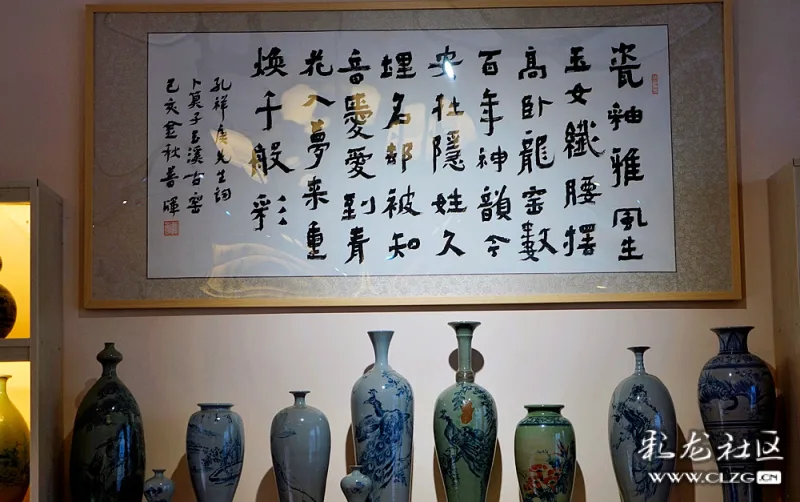 瓷釉雅风生
玉女纖腰擺
高卧龍窑數
百年神韻今
安在隱姓久
埋名却被知
音愛愛到青
花入夢来重
焕千般彩
孔祥庚先生詞
卜算子玉溪古窑
己亥金秋善暉
彩龙社区
WWW.CLZG.CN